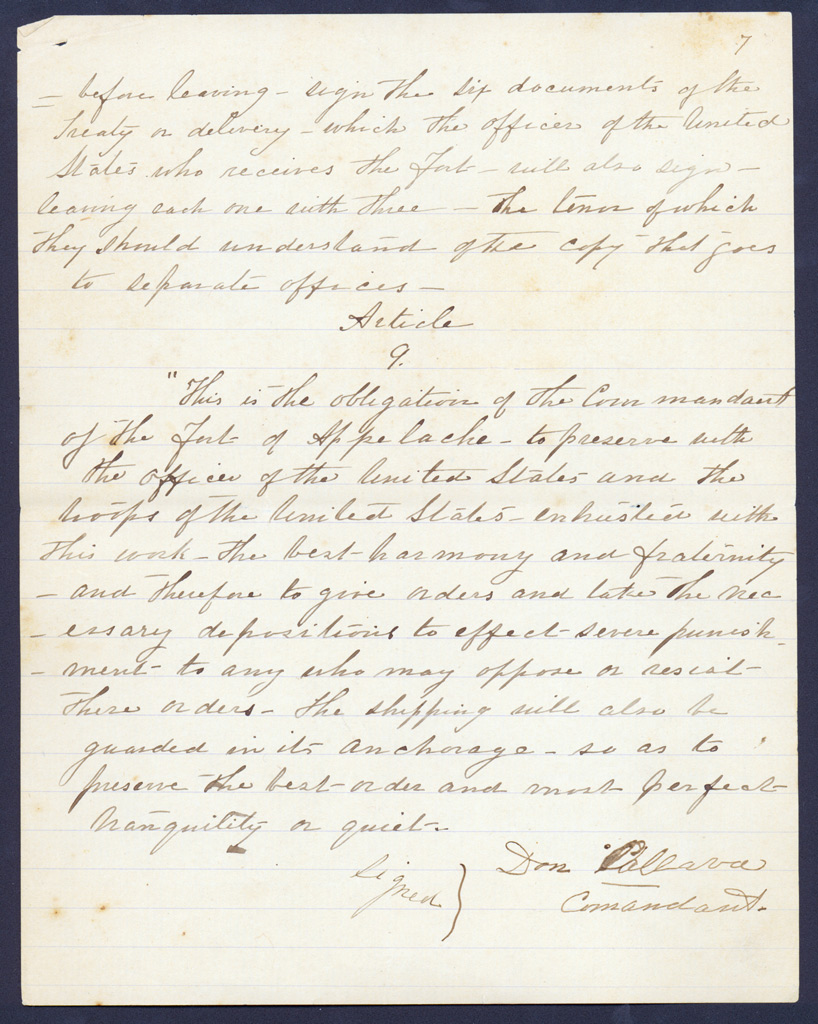 7
— before leaving — sign the six documents of the
Treaty or delivery — which the officer of the United
States who receives the Fort — will also sign —
leaving each one with three — the tenor of which
they should understand of the copy that goes
to separate offices —
Article
9.
"This is the obligation of the Commandant
of the Fort of Appelache — to preserve with
the officer of the United States and the
troops of the United States — entrusted with
this work — the best harmony and fraternity
— and therefore to give orders and take the nec
— essary depositions to effect severe punish-
— ment to any who may oppose or resist
these orders — the shipping will also be
guarded in its anchorage — so as to
preserve the best order and most perfect
tranquility or quiet —
Signed } Don Callava
Comandant.